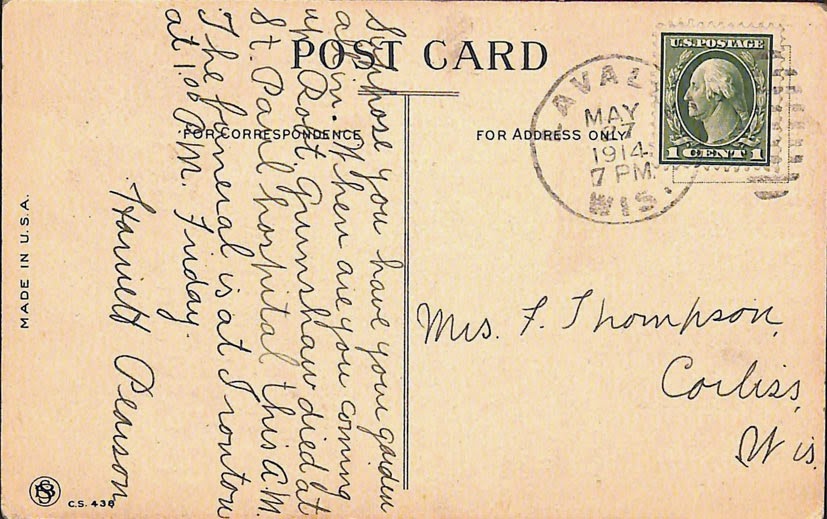 POST CARD
FOR CORRESPONDENCE
FOR ADDRESS ONLY
U.S. POSTAGE
1 CENT 1
LAVAL
MAY
27
1914
7 PM
WIS.
Suppose you have your garden
all in. When are you coming
up. Robt. Grimshaw died at
St. Paul hospital this A.M.
The funeral is at Ironton
at 1.00 P.M. Friday.
Harriett Pearson
Mrs. F. Thompson,
Corliss,
Wis.
MADE IN U.S.A.
C.S. 438